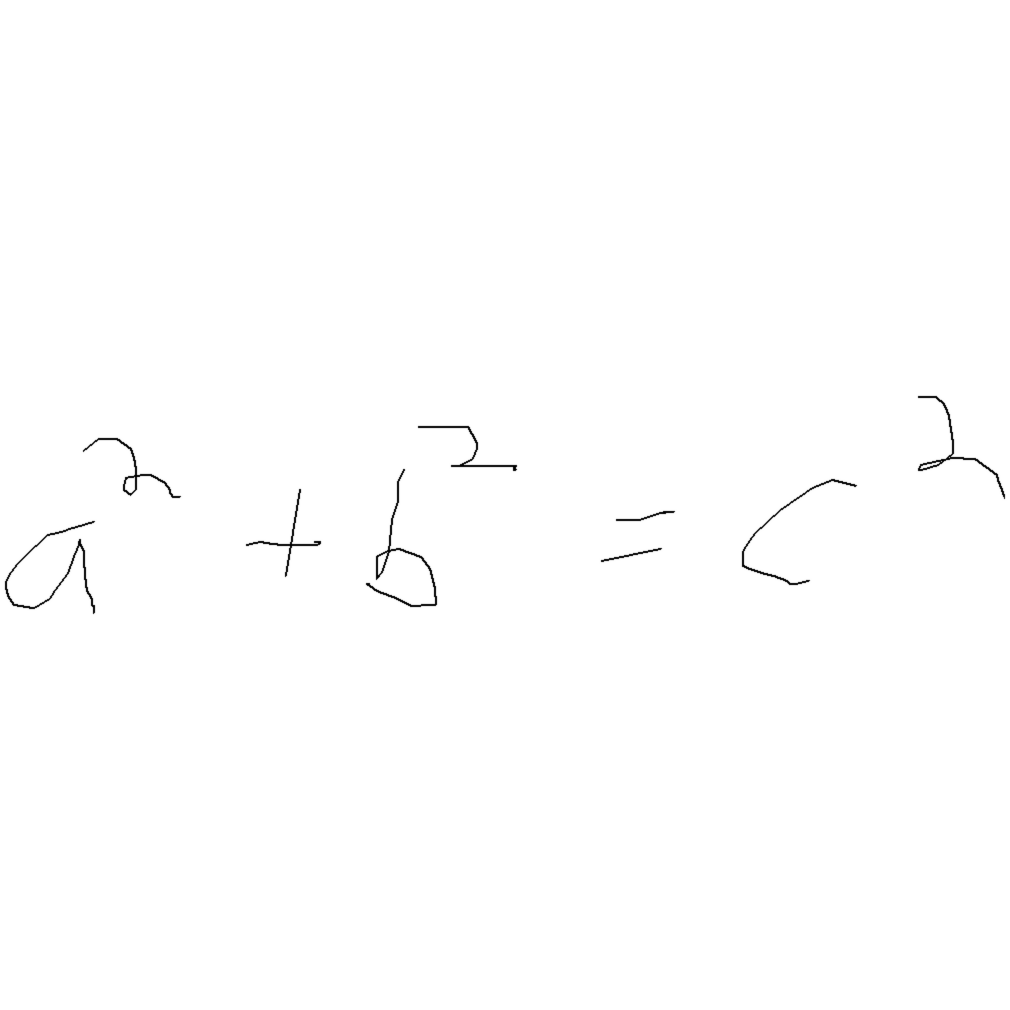 a² + b² = c²